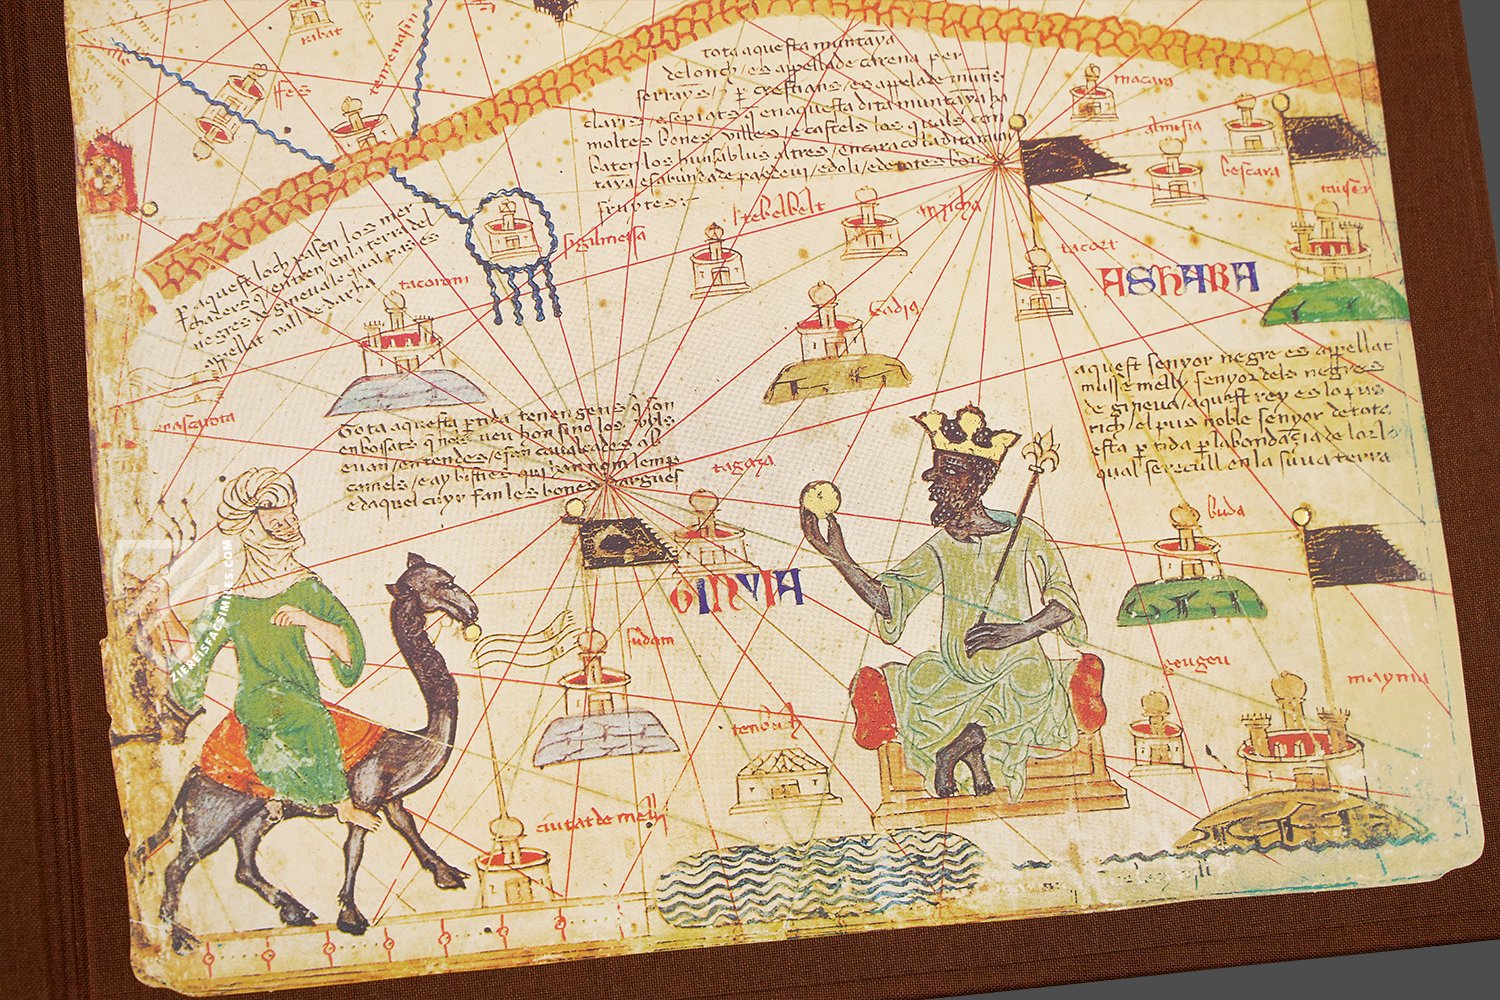 ribat
fes
tota aquesta muntaya
de lonch / es appellade carena per
serrayns / e per crestians / es apelade muns
claris / e sepiats q en aquesta dita muntaya ha
moltes bones villes / e castels los quals con
baten los huns ab los altres / encara co la dita mun
taya es abundade de pa e de vi / e doli / e de totes bones
fruytes :-
macara
almisia
bescara
tacort
ASHARA
tebelbelt
sigilmessa
Per aquest loch pasen los mer
chaders q entren en la terra del
negres de gineua lo qual pas es
appellat vall de darha
tacorom
aquest senyor negre es appellat
musse melly senyor dels negres
de gineua / aquest rey es lo pus
rich / el pus noble senyor de tota
esta ptida p labondaçia de lor l
qual se recull en la suua terra
Tota aquesta ptida tenen gens q son
enbossats q nols veu hom sino los vyls
e van / en tendes / e fan caualcades ab
camels / e ay bisties qui han nom lemp
e daquel cuyr fan les bones dargues
tagaza
buda
GINYIA
ZIEREISFACSIMILES.COM
sudam
geugeu
mayma
tenbuch
ciutat de melli